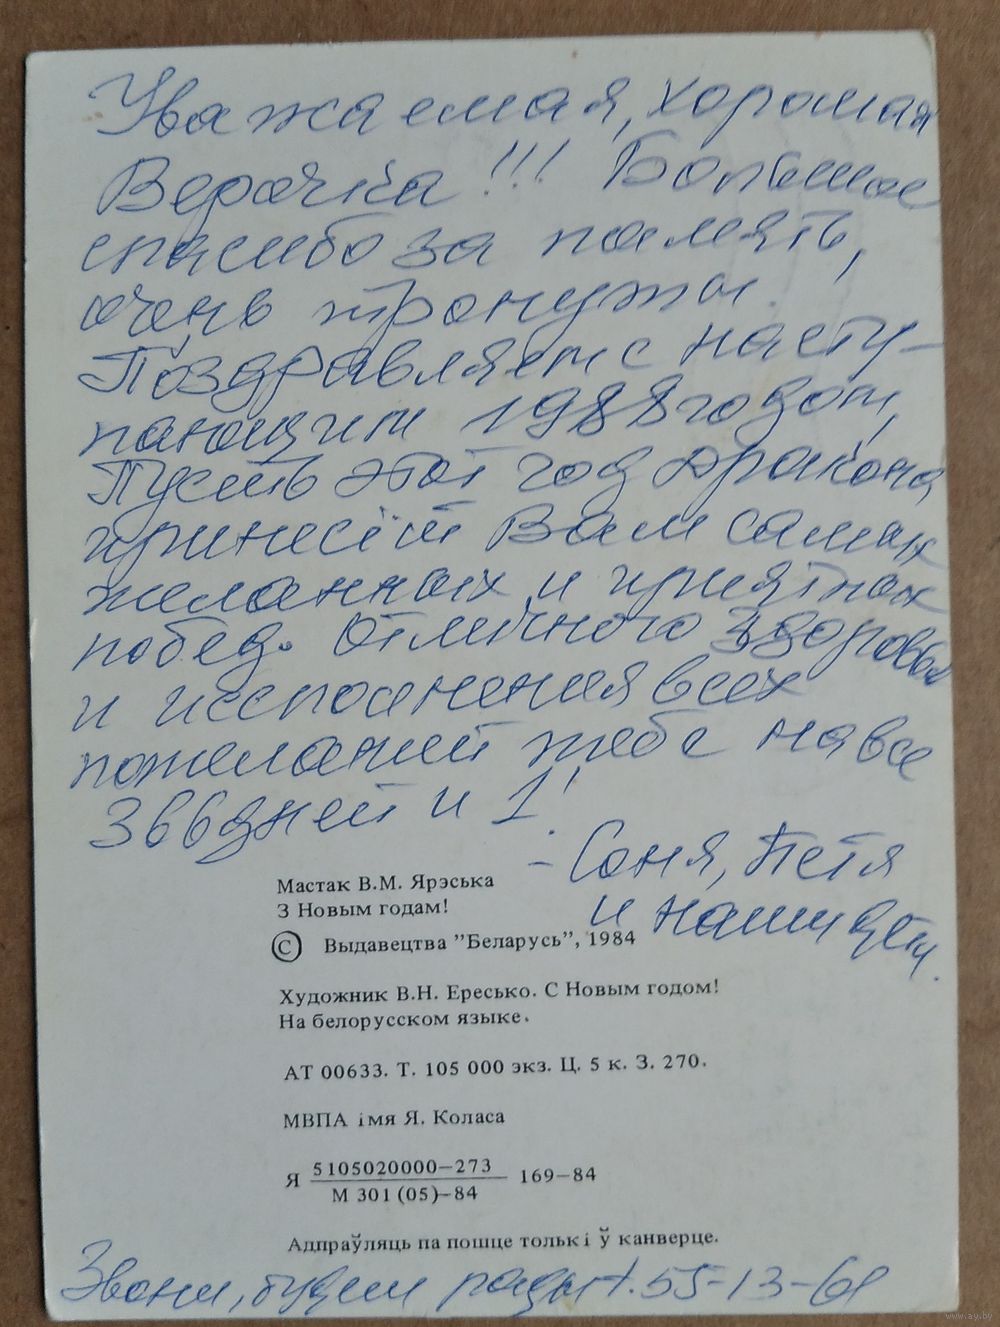 Уважаемая, хорошая
Верочка!!! Большое
спасибо за память,
очень тронуты.
Поздравляем с насту-
пающим 1988 годом,
Пусть этот год дракона
принесёт Вам самых
желанных и приятных
побед. Отличного здоровья
и исполнения всех
пожеланий тебе на все
366 дней и 1!
- Соня, Петя
и наши дети.
Мастак В.М. Ярэська
З Новым годам!
© Выдавецтва "Беларусь", 1984
Художник В.Н. Ересько. С Новым годом!
На белорусском языке.
АТ 00633. Т. 105 000 экз. Ц. 5 к. З. 270.
МВПА імя Я. Коласа
Я 5105020000-273 169-84
М 301(05)-84
Адпраўляць па пошце толькі ў канверце.
Звони, будем рады т. 55-13-61
www.ay.by